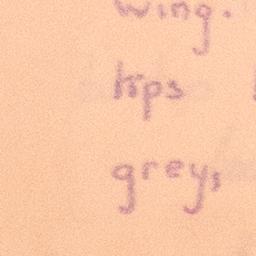 wing.
lips
grey,